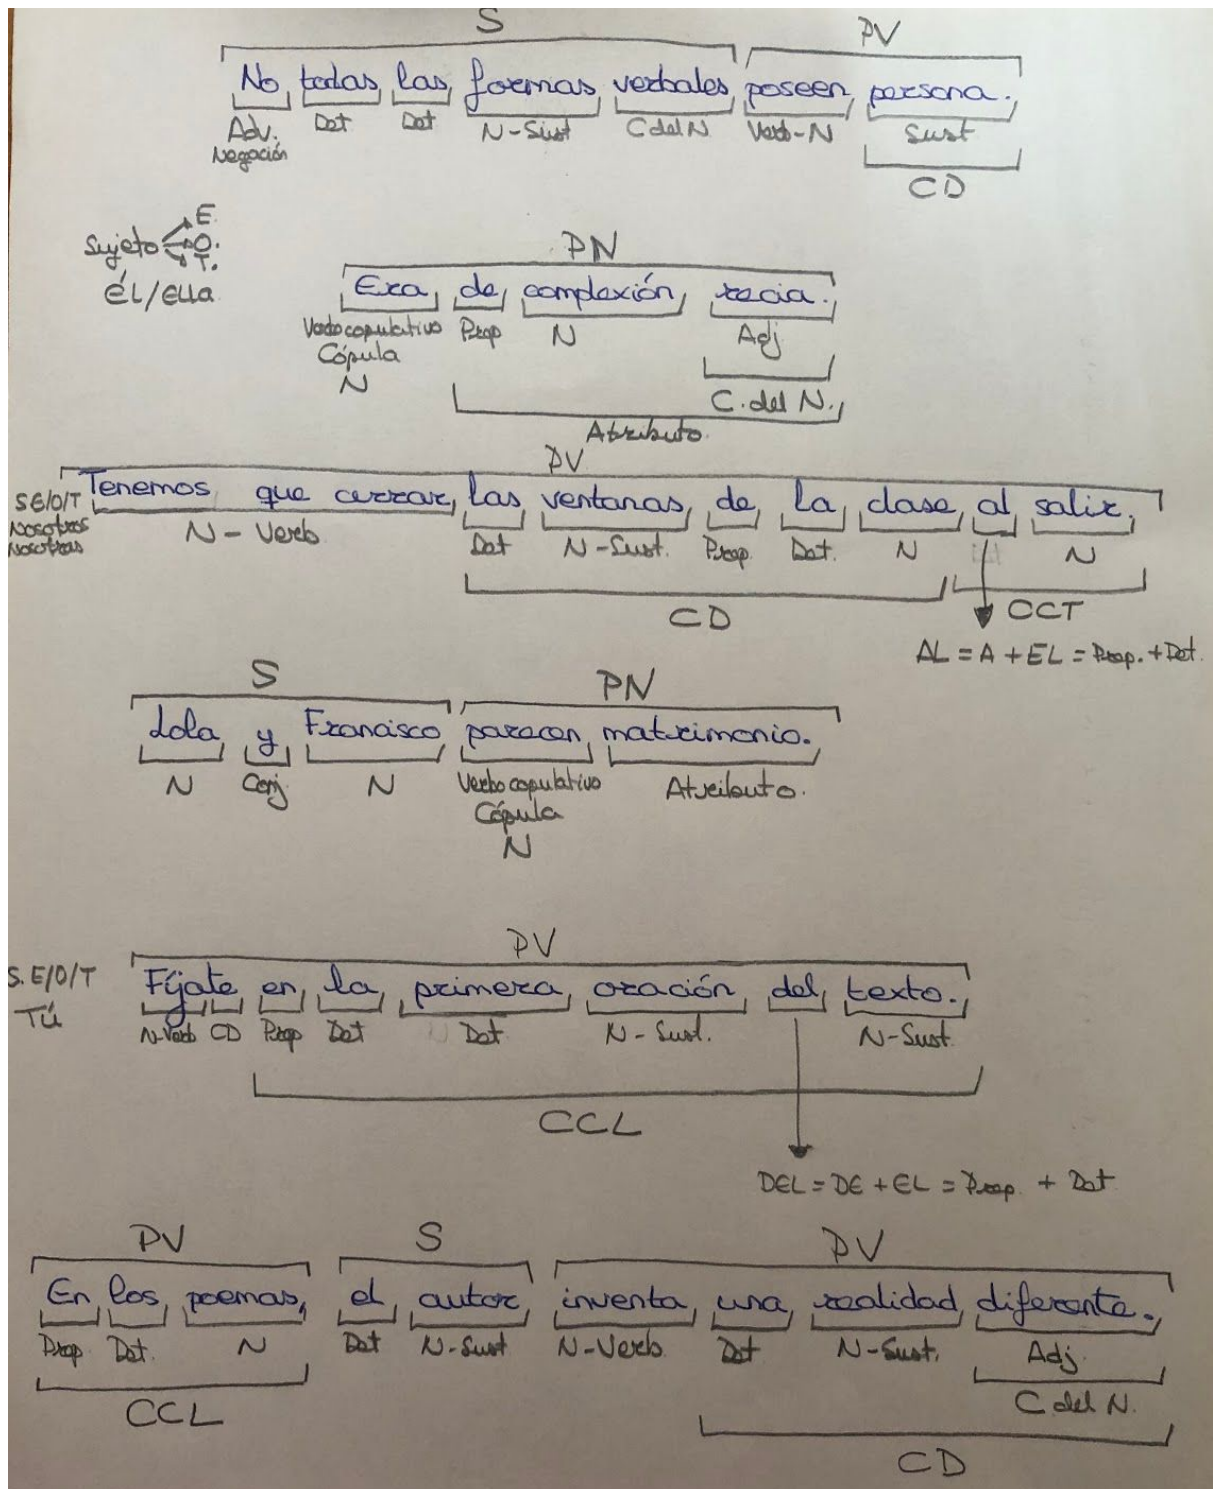 S PV
No todas las formas verbales poseen persona.
Adv. Det Det N-Sust C del N Verb-N Sust
Negación
CD
E.
Sujeto O.
T.
ÉL/ELLA
PN
Era de complexión recia.
Verbo copulativo Prep N Adj
Cópula
N
C. del N.
Atributo.
PV
S E/O/T Tenemos que cerrar las ventanas de la clase al salir.
Nosotros
Nosotras
N - Verb Det N-Sust. Prep. Det. N N
CD CCT
AL = A + EL = Prep. + Det.
S PN
Lola y Francisco parecen matrimonio.
N Conj N Verbo copulativo Atributo.
Cópula
N
PV
S. E/O/T Fíjate en la primera oración del texto.
Tú N-Verb CD Prep Det Det N-Sust. N-Sust.
CCL
DEL = DE + EL = Prep. + Det
PV S PV
En los poemas, el autor inventa una realidad diferente.
Prep Det. N Det N-Sust N-Verb Det N-Sust. Adj.
CCL C. del N.
CD